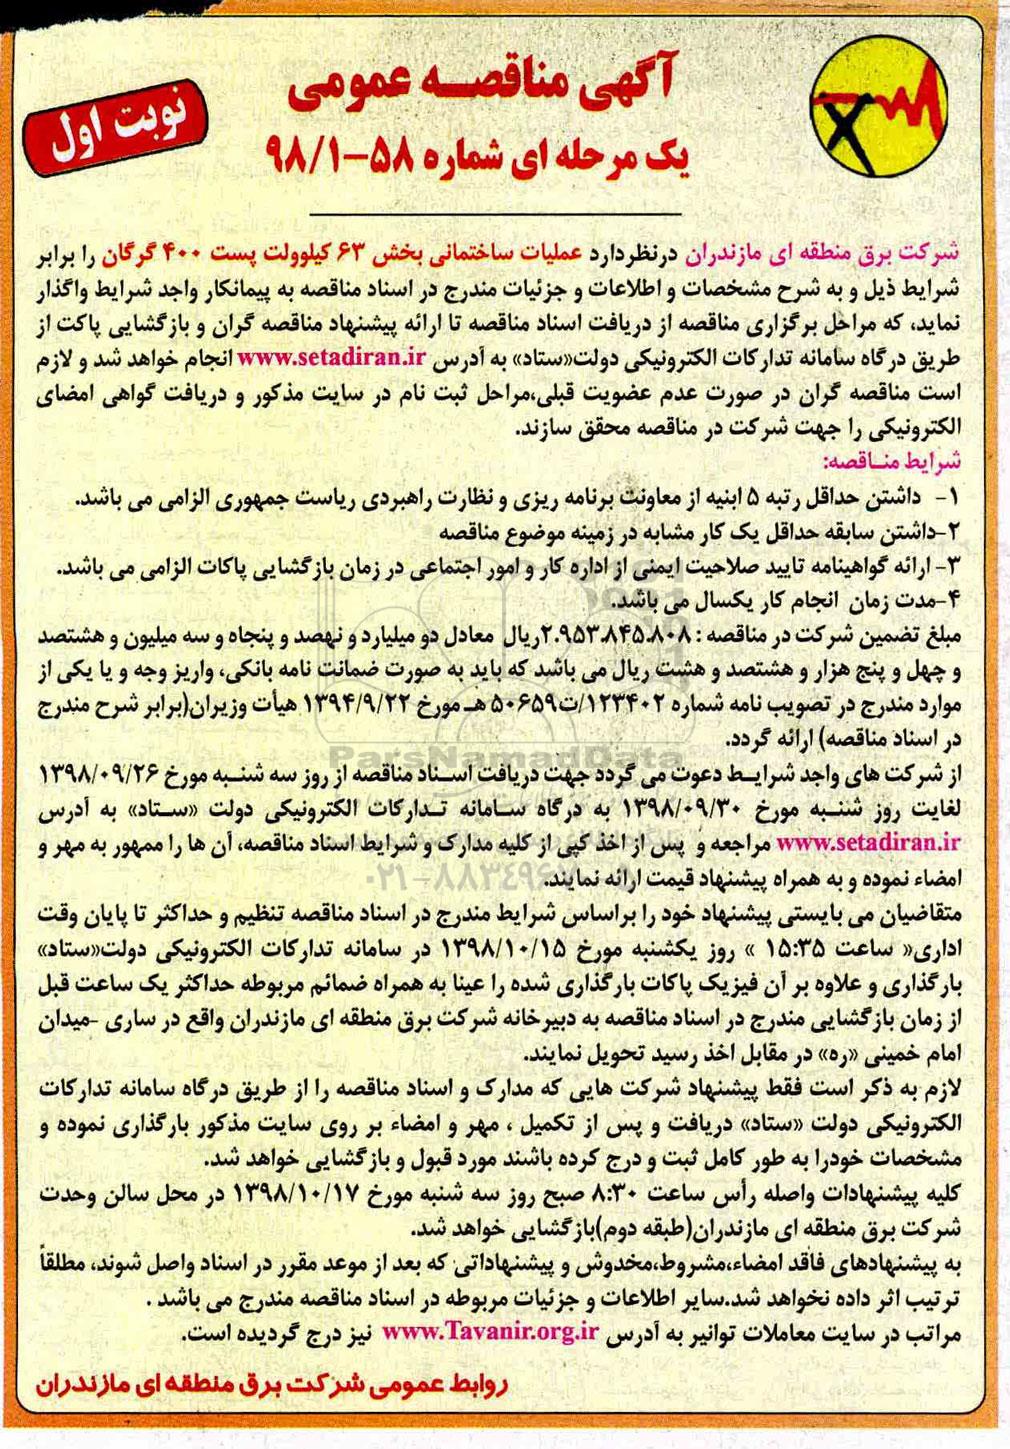 آگهی مناقصـه عمومی
یک مرحله ای شماره ۵۸-۹۸/۱
نوبت اول
شرکت برق منطقه ای مازندران درنظردارد عملیات ساختمانی بخش ۶۳ کیلوولت پست ۴۰۰ گرگان را برابر
شرایط ذیل و به شرح مشخصات و اطلاعات و جزئیات مندرج در اسناد مناقصه به پیمانکار واجد شرایط واگذار
نماید، که مراحل برگزاری مناقصه از دریافت اسناد مناقصه تا ارائه پیشنهاد مناقصه گران و بازگشایی پاکت از
طریق درگاه سامانه تدارکات الکترونیکی دولت«ستاد» به آدرس www.setadiran.ir انجام خواهد شد و لازم
است مناقصه گران در صورت عدم عضویت قبلی،مراحل ثبت نام در سایت مذکور و دریافت گواهی امضای
الکترونیکی را جهت شرکت در مناقصه محقق سازند.
شرایط مناقصه:
۱- داشتن حداقل رتبه ۵ ابنیه از معاونت برنامه ریزی و نظارت راهبردی ریاست جمهوری الزامی می باشد.
۲-داشتن سابقه حداقل یک کار مشابه در زمینه موضوع مناقصه
۳- ارائه گواهینامه تایید صلاحیت ایمنی از اداره کار و امور اجتماعی در زمان بازگشایی پاکات الزامی می باشد.
۴-مدت زمان انجام کار یکسال می باشد.
مبلغ تضمین شرکت در مناقصه : ۲.۹۵۳.۸۴۵.۸۰۸ریال معادل دو میلیارد و نهصد و پنجاه و سه میلیون و هشتصد
و چهل و پنج هزار و هشتصد و هشت ریال می باشد که باید به صورت ضمانت نامه بانکی، واریز وجه و یا یکی از
موارد مندرج در تصویب نامه شماره ۱۲۳۴۰۲/ت۵۰۶۵۹ هـ مورخ ۱۳۹۴/۹/۲۲ هیأت وزیران(برابر شرح مندرج
در اسناد مناقصه) ارائه گردد.
از شرکت های واجد شرایط دعوت می گردد جهت دریافت اسناد مناقصه از روز سه شنبه مورخ ۱۳۹۸/۰۹/۲۶
لغایت روز شنبه مورخ ۱۳۹۸/۰۹/۳۰ به درگاه سامانه تدارکات الکترونیکی دولت «ستاد» به آدرس
www.setadiran.ir مراجعه و پس از اخذ کپی از کلیه مدارک و شرایط اسناد مناقصه، آن ها را ممهور به مهر و
امضاء نموده و به همراه پیشنهاد قیمت ارائه نمایند.
متقاضیان می بایستی پیشنهاد خود را براساس شرایط مندرج در اسناد مناقصه تنظیم و حداکثر تا پایان وقت
اداری« ساعت ۱۵:۳۵ » روز یکشنبه مورخ ۱۳۹۸/۱۰/۱۵ در سامانه تدارکات الکترونیکی دولت«ستاد»
بارگذاری و علاوه بر آن فیزیک پاکات بارگذاری شده را عینا به همراه ضمائم مربوطه حداکثر یک ساعت قبل
از زمان بازگشایی مندرج در اسناد مناقصه به دبیرخانه شرکت برق منطقه ای مازندران واقع در ساری -میدان
امام خمینی «ره» در مقابل اخذ رسید تحویل نمایند.
لازم به ذکر است فقط پیشنهاد شرکت هایی که مدارک و اسناد مناقصه را از طریق درگاه سامانه تدارکات
الکترونیکی دولت «ستاد» دریافت و پس از تکمیل ، مهر و امضاء بر روی سایت مذکور بارگذاری نموده و
مشخصات خودرا به طور کامل ثبت و درج کرده باشند مورد قبول و بازگشایی خواهد شد.
کلیه پیشنهادات واصله رأس ساعت ۸:۳۰ صبح روز سه شنبه مورخ ۱۳۹۸/۱۰/۱۷ در محل سالن وحدت
شرکت برق منطقه ای مازندران(طبقه دوم)بازگشایی خواهد شد.
به پیشنهادهای فاقد امضاء،مشروط،مخدوش و پیشنهاداتی که بعد از موعد مقرر در اسناد واصل شوند، مطلقاً
ترتیب اثر داده نخواهد شد.سایر اطلاعات و جزئیات مربوطه در اسناد مناقصه مندرج می باشد .
مراتب در سایت معاملات توانیر به آدرس www.Tavanir.org.ir نیز درج گردیده است.
روابط عمومی شرکت برق منطقه ای مازندران
ParsNamadData